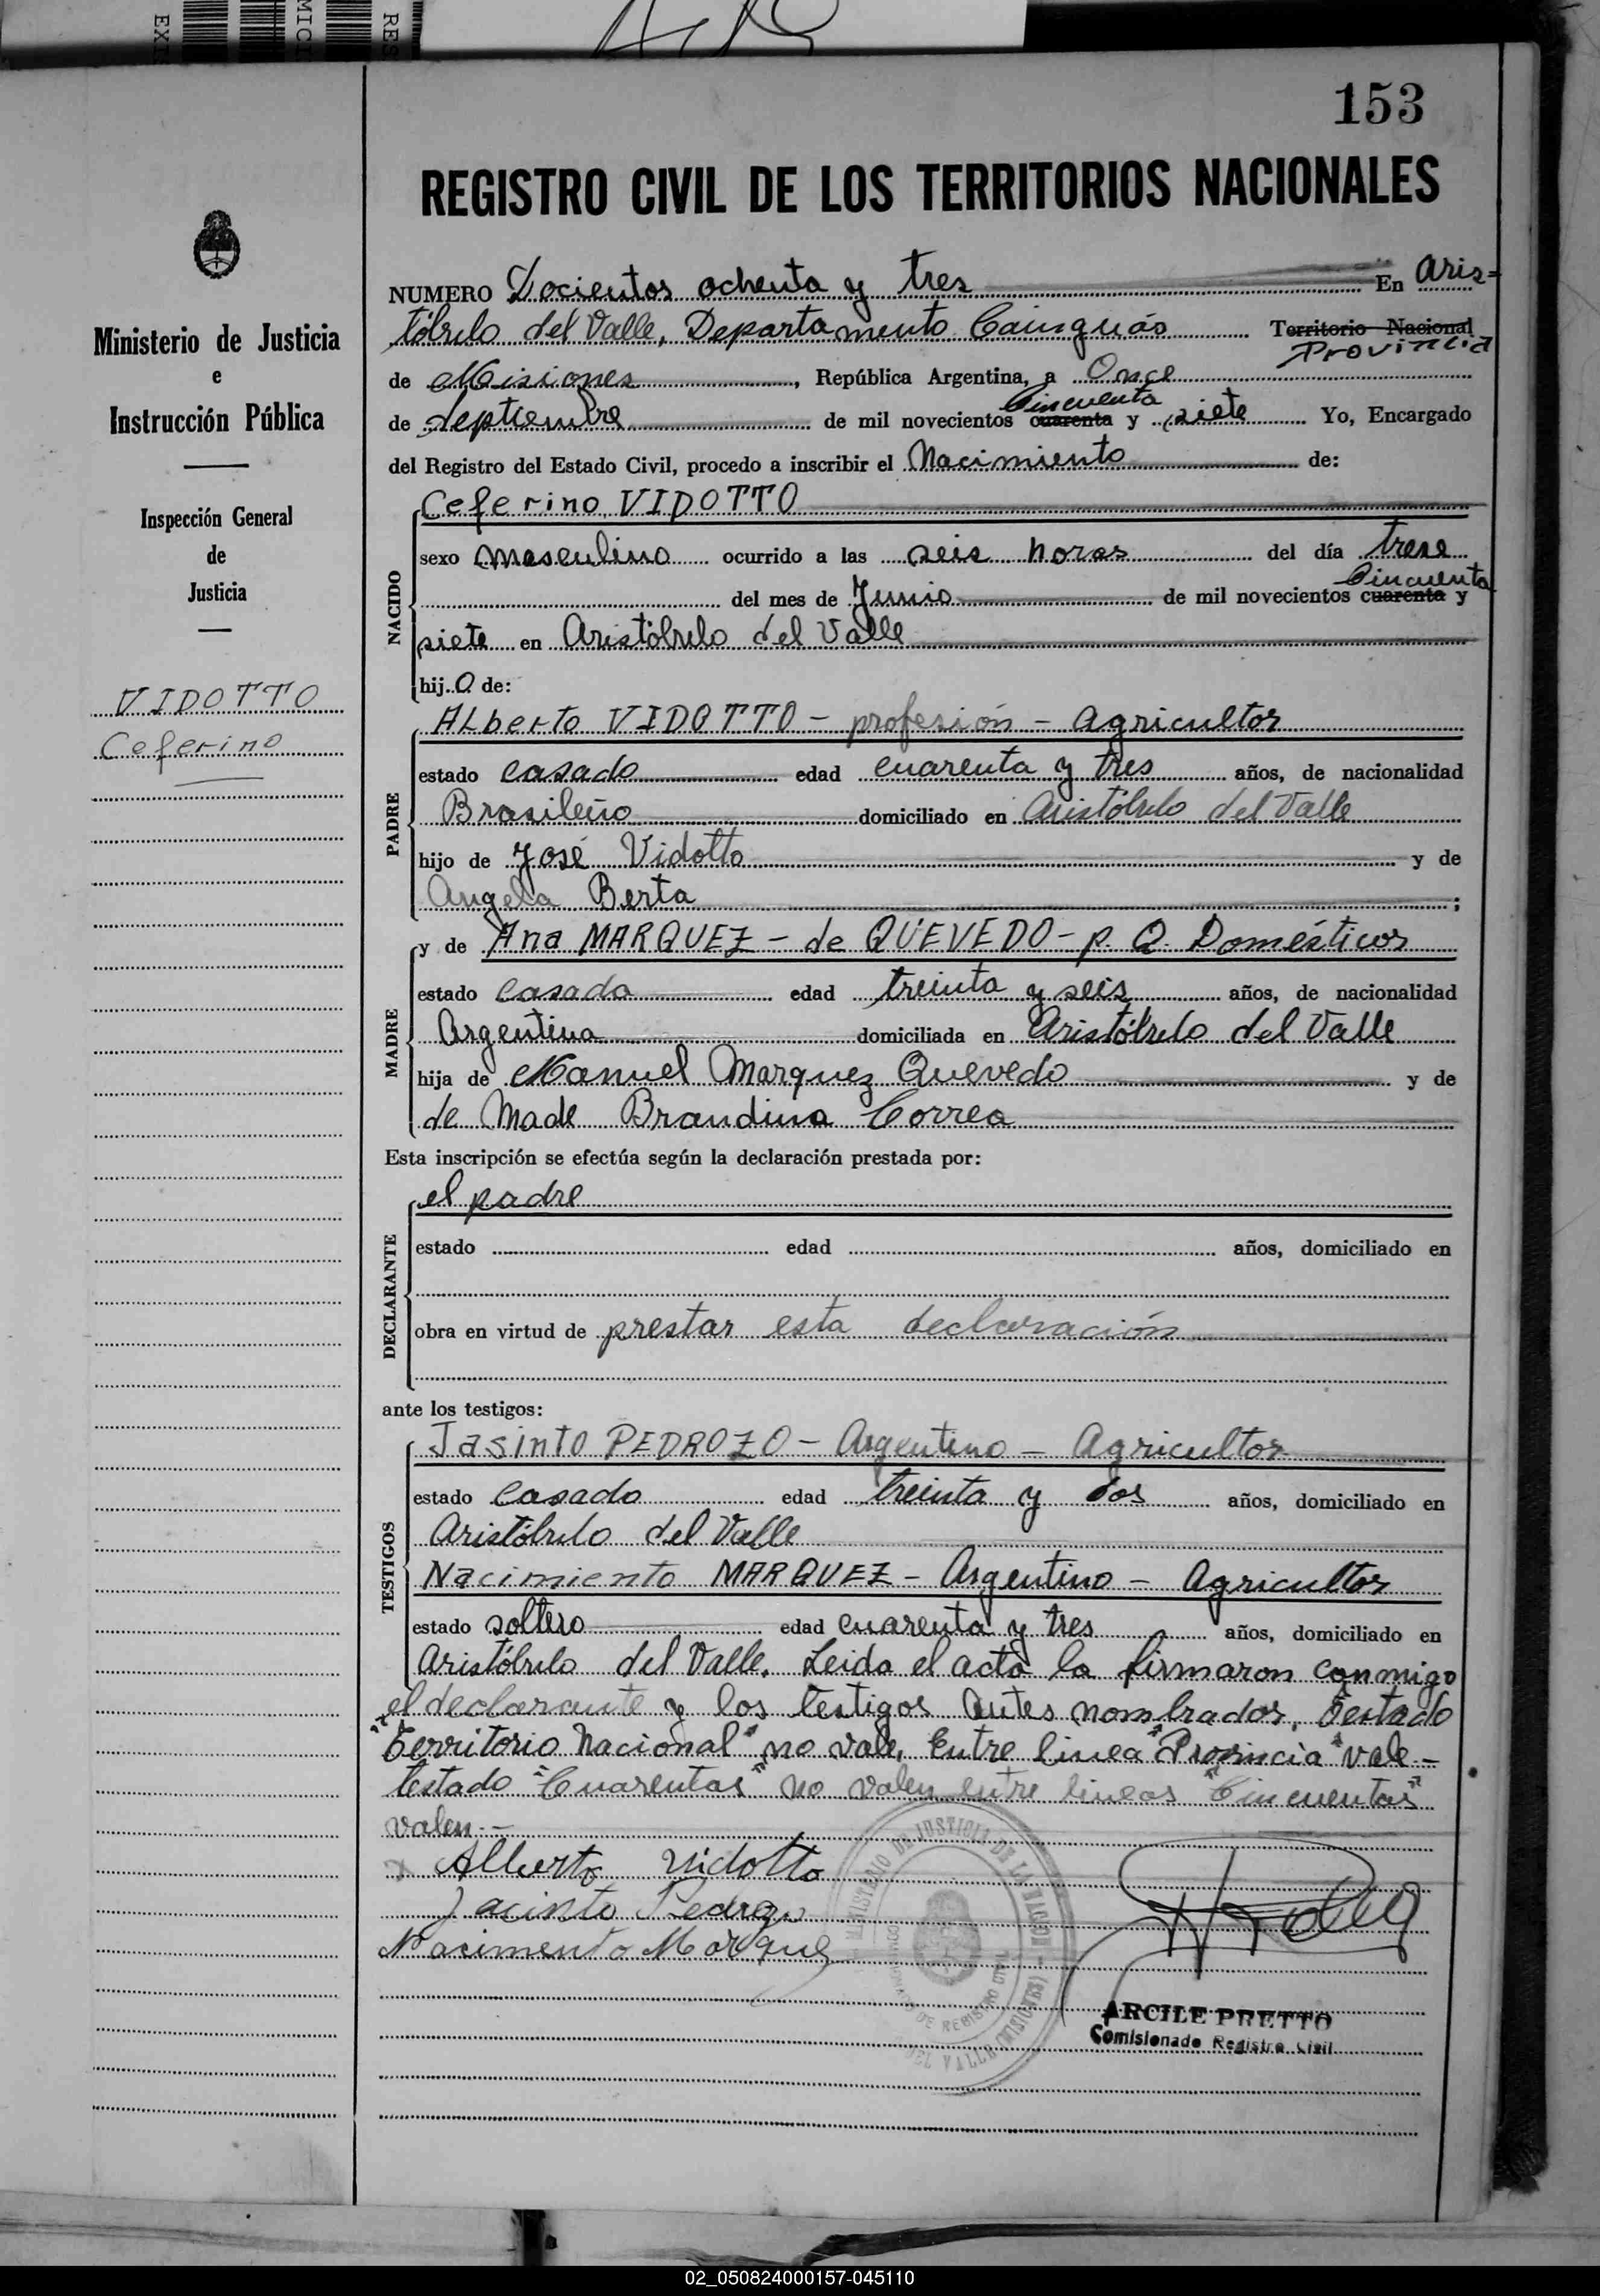 153
REGISTRO CIVIL DE LOS TERRITORIOS NACIONALES
Ministerio de Justicia
e
Instrucción Pública
Inspección General
de
Justicia
VIDOTTO
Ceferino
NUMERO Docientos ochenta y tres En Aris=
tóbulo del Valle, Departamento Cainguás Territorio Nacional
Provincia
de Misiones, República Argentina, a Once
Cincuenta
de Septiembre de mil novecientos cuarenta y siete Yo, Encargado
del Registro del Estado Civil, procedo a inscribir el Nacimiento de:
NACIDO
Ceferino VIDOTTO
sexo masculino ocurrido a las seis horas del día trese
Cincuenta
del mes de Junio de mil novecientos cuarenta y
siete en Aristóbulo del Valle
hijo de:
PADRE
Alberto VIDOTTO - profesión - Agricultor
estado casado edad cuarenta y tres años, de nacionalidad
Brasileño domiciliado en Aristóbulo del Valle
hijo de José Vidotto y de
Angela Berta;
MADRE
y de Ana MARQUEZ - de QUEVEDO - p. Q. Domésticos
estado casada edad treinta y seis años, de nacionalidad
Argentina domiciliada en Aristóbulo del Valle
hija de Manuel Marquez Quevedo y de
de Made Brandina Correa
Esta inscripción se efectúa según la declaración prestada por:
DECLARANTE
el padre
estado edad años, domiciliado en
obra en virtud de prestar esta declaración
ante los testigos:
TESTIGOS
Jasinto PEDROZO - Argentino - Agricultor
estado casado edad treinta y dos años, domiciliado en
Aristóbulo del Valle
Nacimiento MARQUEZ - Argentino - Agricultor
estado soltero edad cuarenta y tres años, domiciliado en
Aristóbulo del Valle. Leida el acta la firmaron conmigo
el declarante y los testigos antes nombrados. Testado
"Territorio Nacional" no vale. Entre linea "Provincia" vale -
testado "Cuarentas" no valen entre lineas "Cincuentas"
valen.-
Alberto Vidotto
Jacinto Pedrozo
Nacimento Marques
MINISTERIO DE JUSTICIA DE LA NACION
DE REGISTRO CIVIL
DEL VALLE (MISIONES)
ARCILE PRETTO
Comisionado Registro Civil
02_050824000157-045110